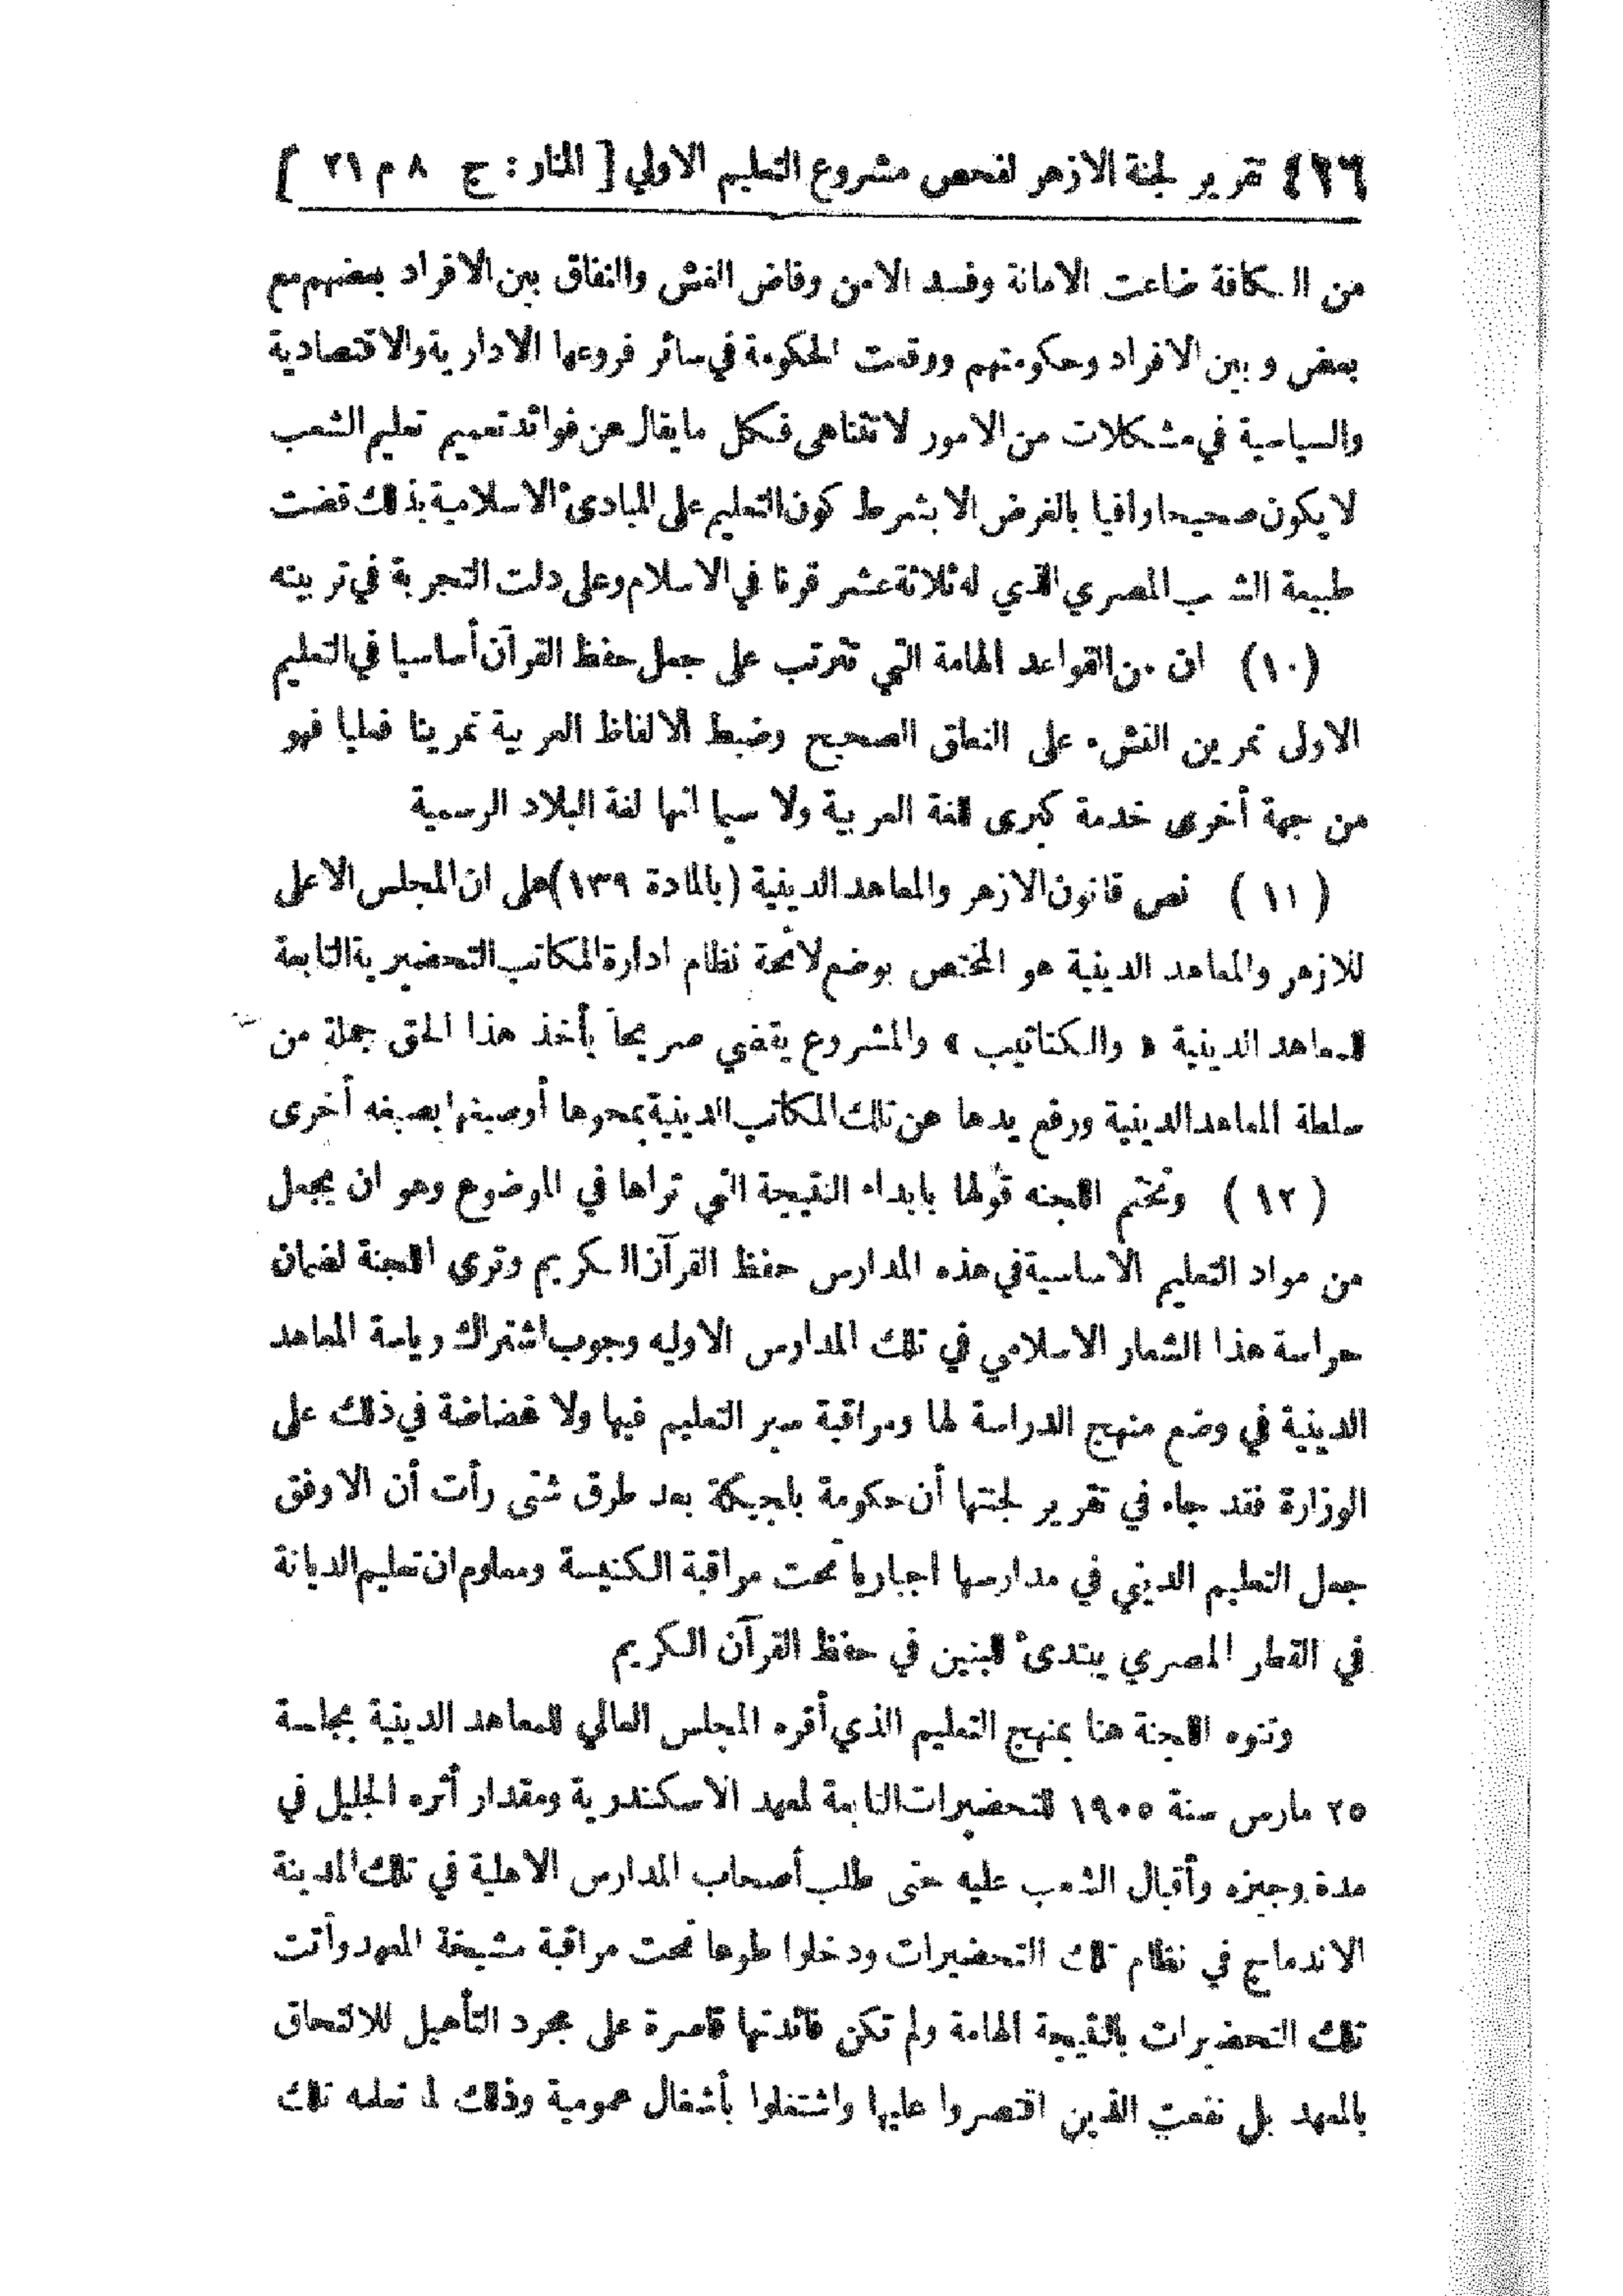 ٤٢٦ تقرير لجنة الازهر لفحص مشروع التعليم الاولي [ المنار : ج ٨ م ٢١ ]
من الكافة ضاعت الامانة وفسد الامن وفاض الغش والنفاق بين الافراد بعضهم مع
بعض وبين الافراد وحكومتهم ووقعت الحكومة في سائر فروعها الادارية والاقتصادية
والسياسية في مشكلات من الامور لا تتناهى فكل ما يقال عن فوائد تعميم تعليم الشعب
لا يكون صحيحا وافيا بالغرض الا بشرط كون التعليم على المبادىء الاسلامية بذلك قضت
طبيعة الشعب المصري الذي له ثلاثة عشر قرنا في الاسلام وعلى دلت التجربة في تربيته
(١٠) ان من القواعد الهامة التي تترتب على جعل حفظ القرآن أساسيا في التعليم
الاولى تمرين النشء على النطق الصحيح وضبط الالفاظ العربية تمرينا فعليا فهو
من جهة أخرى خدمة كبرى للغة العربية ولا سيما انها لغة البلاد الرسمية
( ١١ ) نص قانون الازهر والمعاهد الدينية (بالمادة ١٣٩) على ان المجلس الاعلى
للازهر والمعاهد الدينية هو المختص بوضع لائحة نظام ادارة المكاتب التحضيرية التابعة
للمعاهد الدينية « والكتاتيب » والمشروع يقضي صريحاً بأخذ هذا الحق جملة من
سلطة المعاهد الدينية ورفع يدها عن تلك المكاتب الدينية بمحوها أوصبغها بصبغه أخرى
( ١٢ ) وتختم اللجنه قولها بابداء النتيجة التي تراها في الموضوع وهو ان يجعل
من مواد التعليم الاساسية في هذه المدارس حفظ القرآن الكريم وترى اللجنة لضمان
حراسة هذا الشعار الاسلامي في تلك المدارس الاوليه وجوب اشتراك رياسة المعاهد
الدينية في وضع منهج الدراسة لها ومراقبة سير التعليم فيها ولا غضاضة في ذلك على
الوزارة فقد جاء في تقرير لجنتها أن حكومة بلجيكة بعد طرق شتى رأت أن الاوفق
جعل التعليم الديني في مدارسها اجباريا تحت مراقبة الكنيسة ومعلوم ان تعليم الديانة
في القطر المصري يبتدىء للبنين في حفظ القرآن الكريم
وتنوه اللجنة هنا بمنهج التعليم الذي أقره المجلس العالي للمعاهد الدينية بجلسة
٢٥ مارس سنة ١٩٠٥ للتحضيرات التابعة لمعهد الاسكندرية ومقدار أثره الجليل في
مدة وجيزه وأقبال الشعب عليه حتى طلب أصحاب المدارس الاهلية في تلك المدينة
الاندماج في نظام تلك التحضيرات ودخلوا طوعا تحت مراقبة مشيخة المعهد وأتت
تلك التحضيرات بالنتيجة الهامة ولم تكن فائدتها قاصرة على مجرد التأهيل للالتحاق
بالمعهد بل نفعت الذين اقتصروا عليها واشتغلوا بأشغال عمومية وذلك لما تعلمه تلك